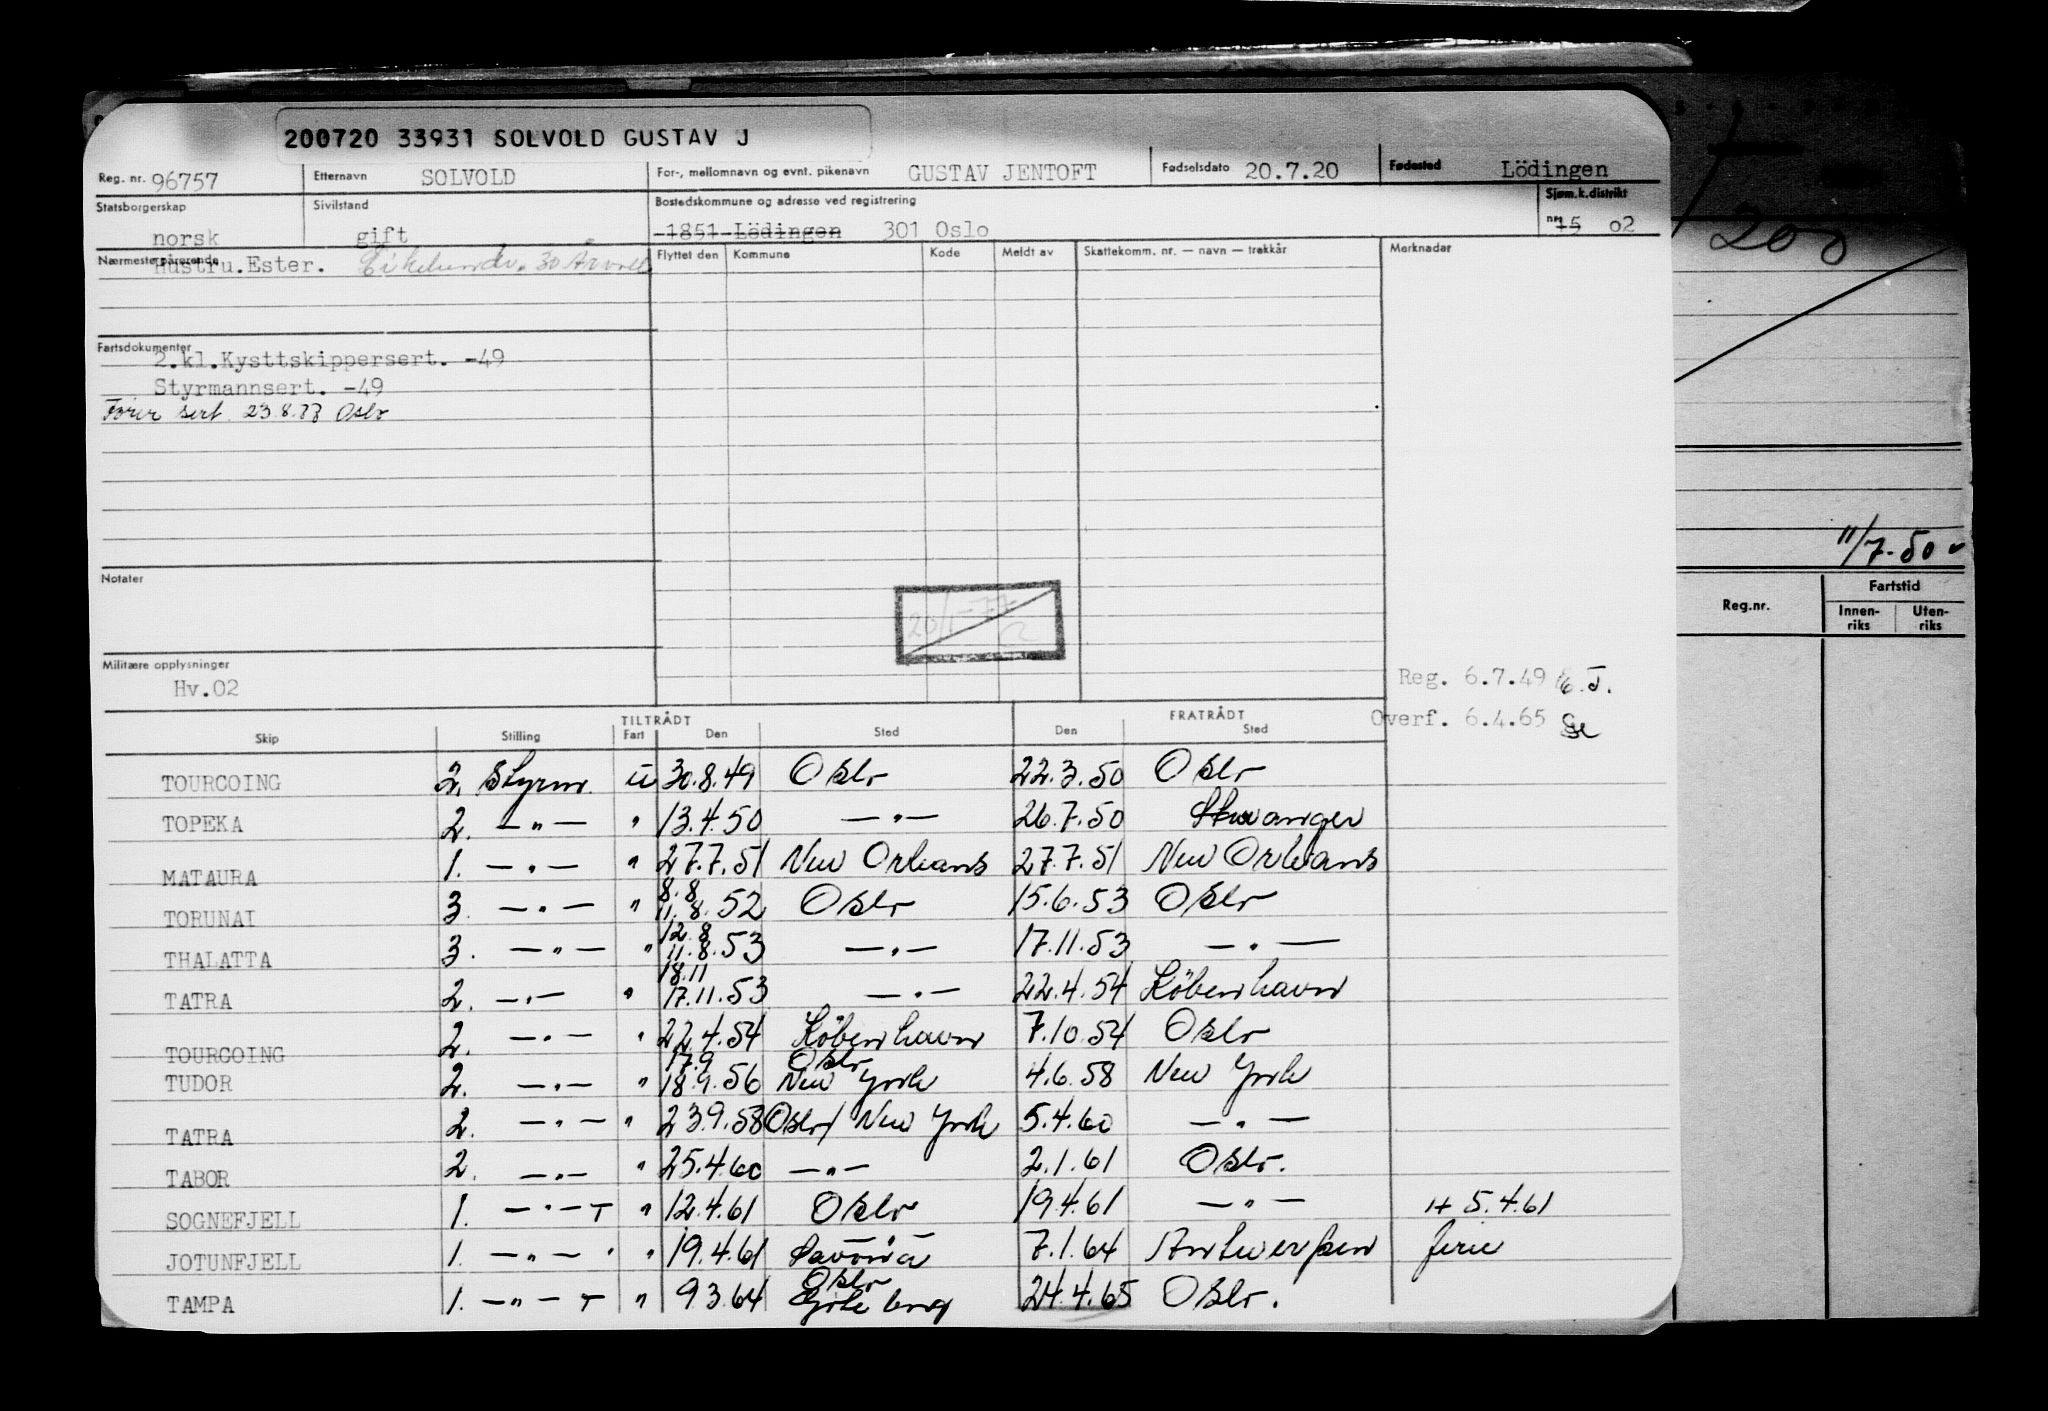 200720 33931 SOLVOLD GUSTAV J
Reg. nr. 96757 Etternavn SOLVOLD For-, mellomnavn og evnt. pikenavn GUSTAV JENTOFT Fødselsdato 20.7.20 Fødested Lödingen
Statsborgerskap norsk Sivilstand gift Bostedskommune og adresse ved registrering -1851-Lödingen 301 Oslo Sjøm.k.distrikt nr. 15 02
Nærmeste pårørende Hustru.Ester. 30 Årvoll Flyttet den Kommune Kode Meldt av Skattekomm. nr. — navn — trekkår Merknader
Fartsdokumenter
2.kl.Kysttskippersert. -49
Styrmannsert. -49
Fører sert 23.8.73 Oslo
Notater
20/1-77
Militære opplysninger
Hv.02
Reg. 6.7.49 E.J.
Overf. 6.4.65
TILTRÅDT FRATRÅDT
Skip Stilling Fart Den Sted Den Sted
TOURCOING 2. Styrm. u 30.8.49 Oslo 22.3.50 Oslo
TOPEKA 2. — " — " 13.4.50 — " — 26.7.50 Stavanger
MATAURA 1. — " — " 27.7.51 New Orleans 27.7.51 New Orleans
TORUNAI 3. — " — " 8.8 11.8.52 Oslo 15.6.53 Oslo
THALATTA 3. — " — " 12.8 11.8.53 — " — 17.11.53 — " —
TATRA 2. — " — " 18.11 17.11.53 — " — 22.4.54 København
TOURCOING 2. — " — " 22.4.54 København 7.10.54 Oslo
TUDOR 2. — " — " 17.9 18.9.56 Oslo New York 4.6.58 New York
TATRA 2. — " — " 23.9.58 Oslo/ New York 5.4.60 — " —
TABOR 2. — " — " 25.4.60 — " — 2.1.61 Oslo.
SOGNEFJELL 1. — " — T " 12.4.61 Oslo 19.4.61 — " — 5.4.61
JOTUNFJELL 1. — " — " " 19.4.61 Savona 7.1.64 Antwerpen ferie
TAMPA 1. — " — T " 9.3.64 Oslo Göteborg 24.4.65 Oslo.
200
11/7-50
Reg.nr. Fartstid
Innen-riks Uten-riks